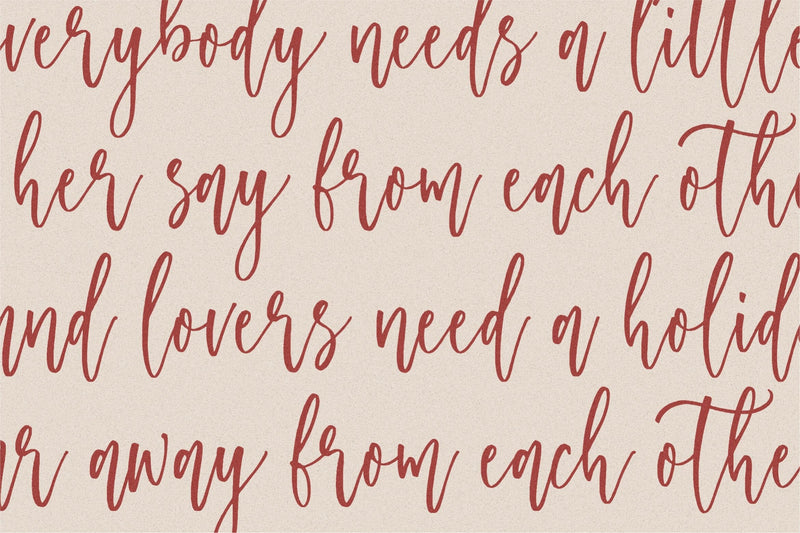 verybody needs a little
her say from each othe
and lovers need a holid
ar away from each othe